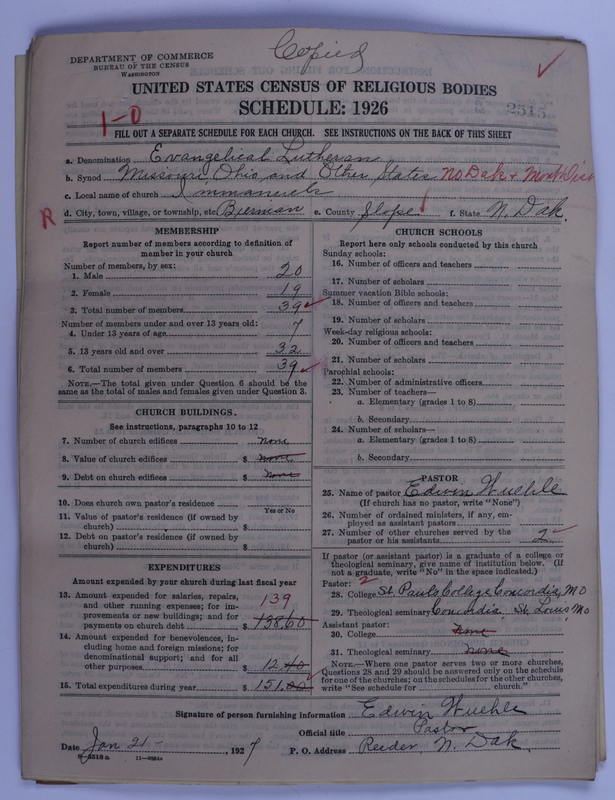 Copied
DEPARTMENT OF COMMERCE
BUREAU OF THE CENSUS
WASHINGTON
UNITED STATES CENSUS OF RELIGIOUS BODIES
SCHEDULE: 1926
2515
1-0
FILL OUT A SEPARATE SCHEDULE FOR EACH CHURCH. SEE INSTRUCTIONS ON THE BACK OF THIS SHEET
a. Denomination Evangelical Lutheran
b. Synod Missouri, Ohio and Other States No Dak + Mont Dist
c. Local name of church Immanuels
R d. City, town, village, or township, etc. Bierman e. County Slope f. State N. Dak.
MEMBERSHIP
Report number of members according to definition of member in your church
Number of members, by sex:
1. Male 20
2. Female 19
3. Total number of members 39
Number of members under and over 13 years old:
4. Under 13 years of age 7
5. 13 years old and over 32
6. Total number of members 39
NOTE.—The total given under Question 6 should be the
same as the total of males and females given under Question 3.
CHURCH BUILDINGS.
See instructions, paragraphs 10 to 12
7. Number of church edifices none
8. Value of church edifices $ none
9. Debt on church edifices $ none
10. Does church own pastor's residence
Yes or No
11. Value of pastor's residence (if owned by
church) $
12. Debt on pastor's residence (if owned by
church) $
EXPENDITURES
Amount expended by your church during last fiscal year
13. Amount expended for salaries, repairs,
and other running expenses; for im-
provements or new buildings; and for
payments on church debt $ 138.60
139
14. Amount expended for benevolences, in-
cluding home and foreign missions; for
denominational support; and for all
other purposes $ 12.40
15. Total expenditures during year $ 151.00
CHURCH SCHOOLS
Report here only schools conducted by this church
Sunday schools:
16. Number of officers and teachers
17. Number of scholars
Summer vacation Bible schools:
18. Number of officers and teachers
19. Number of scholars
Week-day religious schools:
20. Number of officers and teachers
21. Number of scholars
Parochial schools:
22. Number of administrative officers
23. Number of teachers—
a. Elementary (grades 1 to 8)
b. Secondary
24. Number of scholars—
a. Elementary (grades 1 to 8)
b. Secondary
PASTOR
25. Name of pastor Edwin Wuehle
(If church has no pastor, write "None")
26. Number of ordained ministers, if any, em-
ployed as assistant pastors
27. Number of other churches served by the
pastor or his assistants 2
If pastor (or assistant pastor) is a graduate of a college or
theological seminary, give name of institution below. (If
not a graduate, write "No" in the space indicated.)
Pastor: 2
28. College St. Pauls College Concordia, Mo
29. Theological seminary Concordia, St. Louis, Mo
Assistant pastor:
30. College None
31. Theological seminary none
NOTE.—Where one pastor serves two or more churches,
Questions 28 and 29 should be answered only on the schedule
for one of the churches; on the schedules for the other churches,
write "See schedule for church."
Signature of person furnishing information Edwin Wuehle
Official title Pastor
Date Jan 21 -, 1927 P. O. Address Reeder, N. Dak.